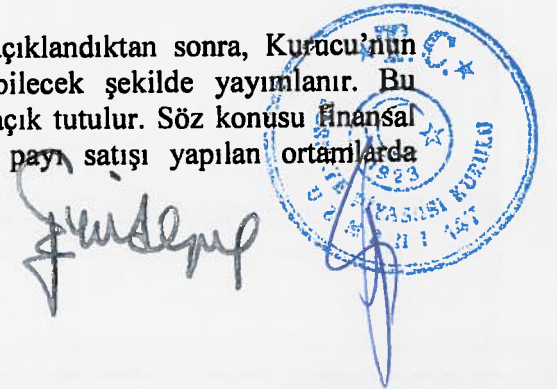 açıklandıktan sonra, Kurucu'nun
bilecek şekilde yayımlanır. Bu
açık tutulur. Söz konusu finansal
payı satışı yapılan ortamlarda
T.C.
1923
PİYASASI KURULU